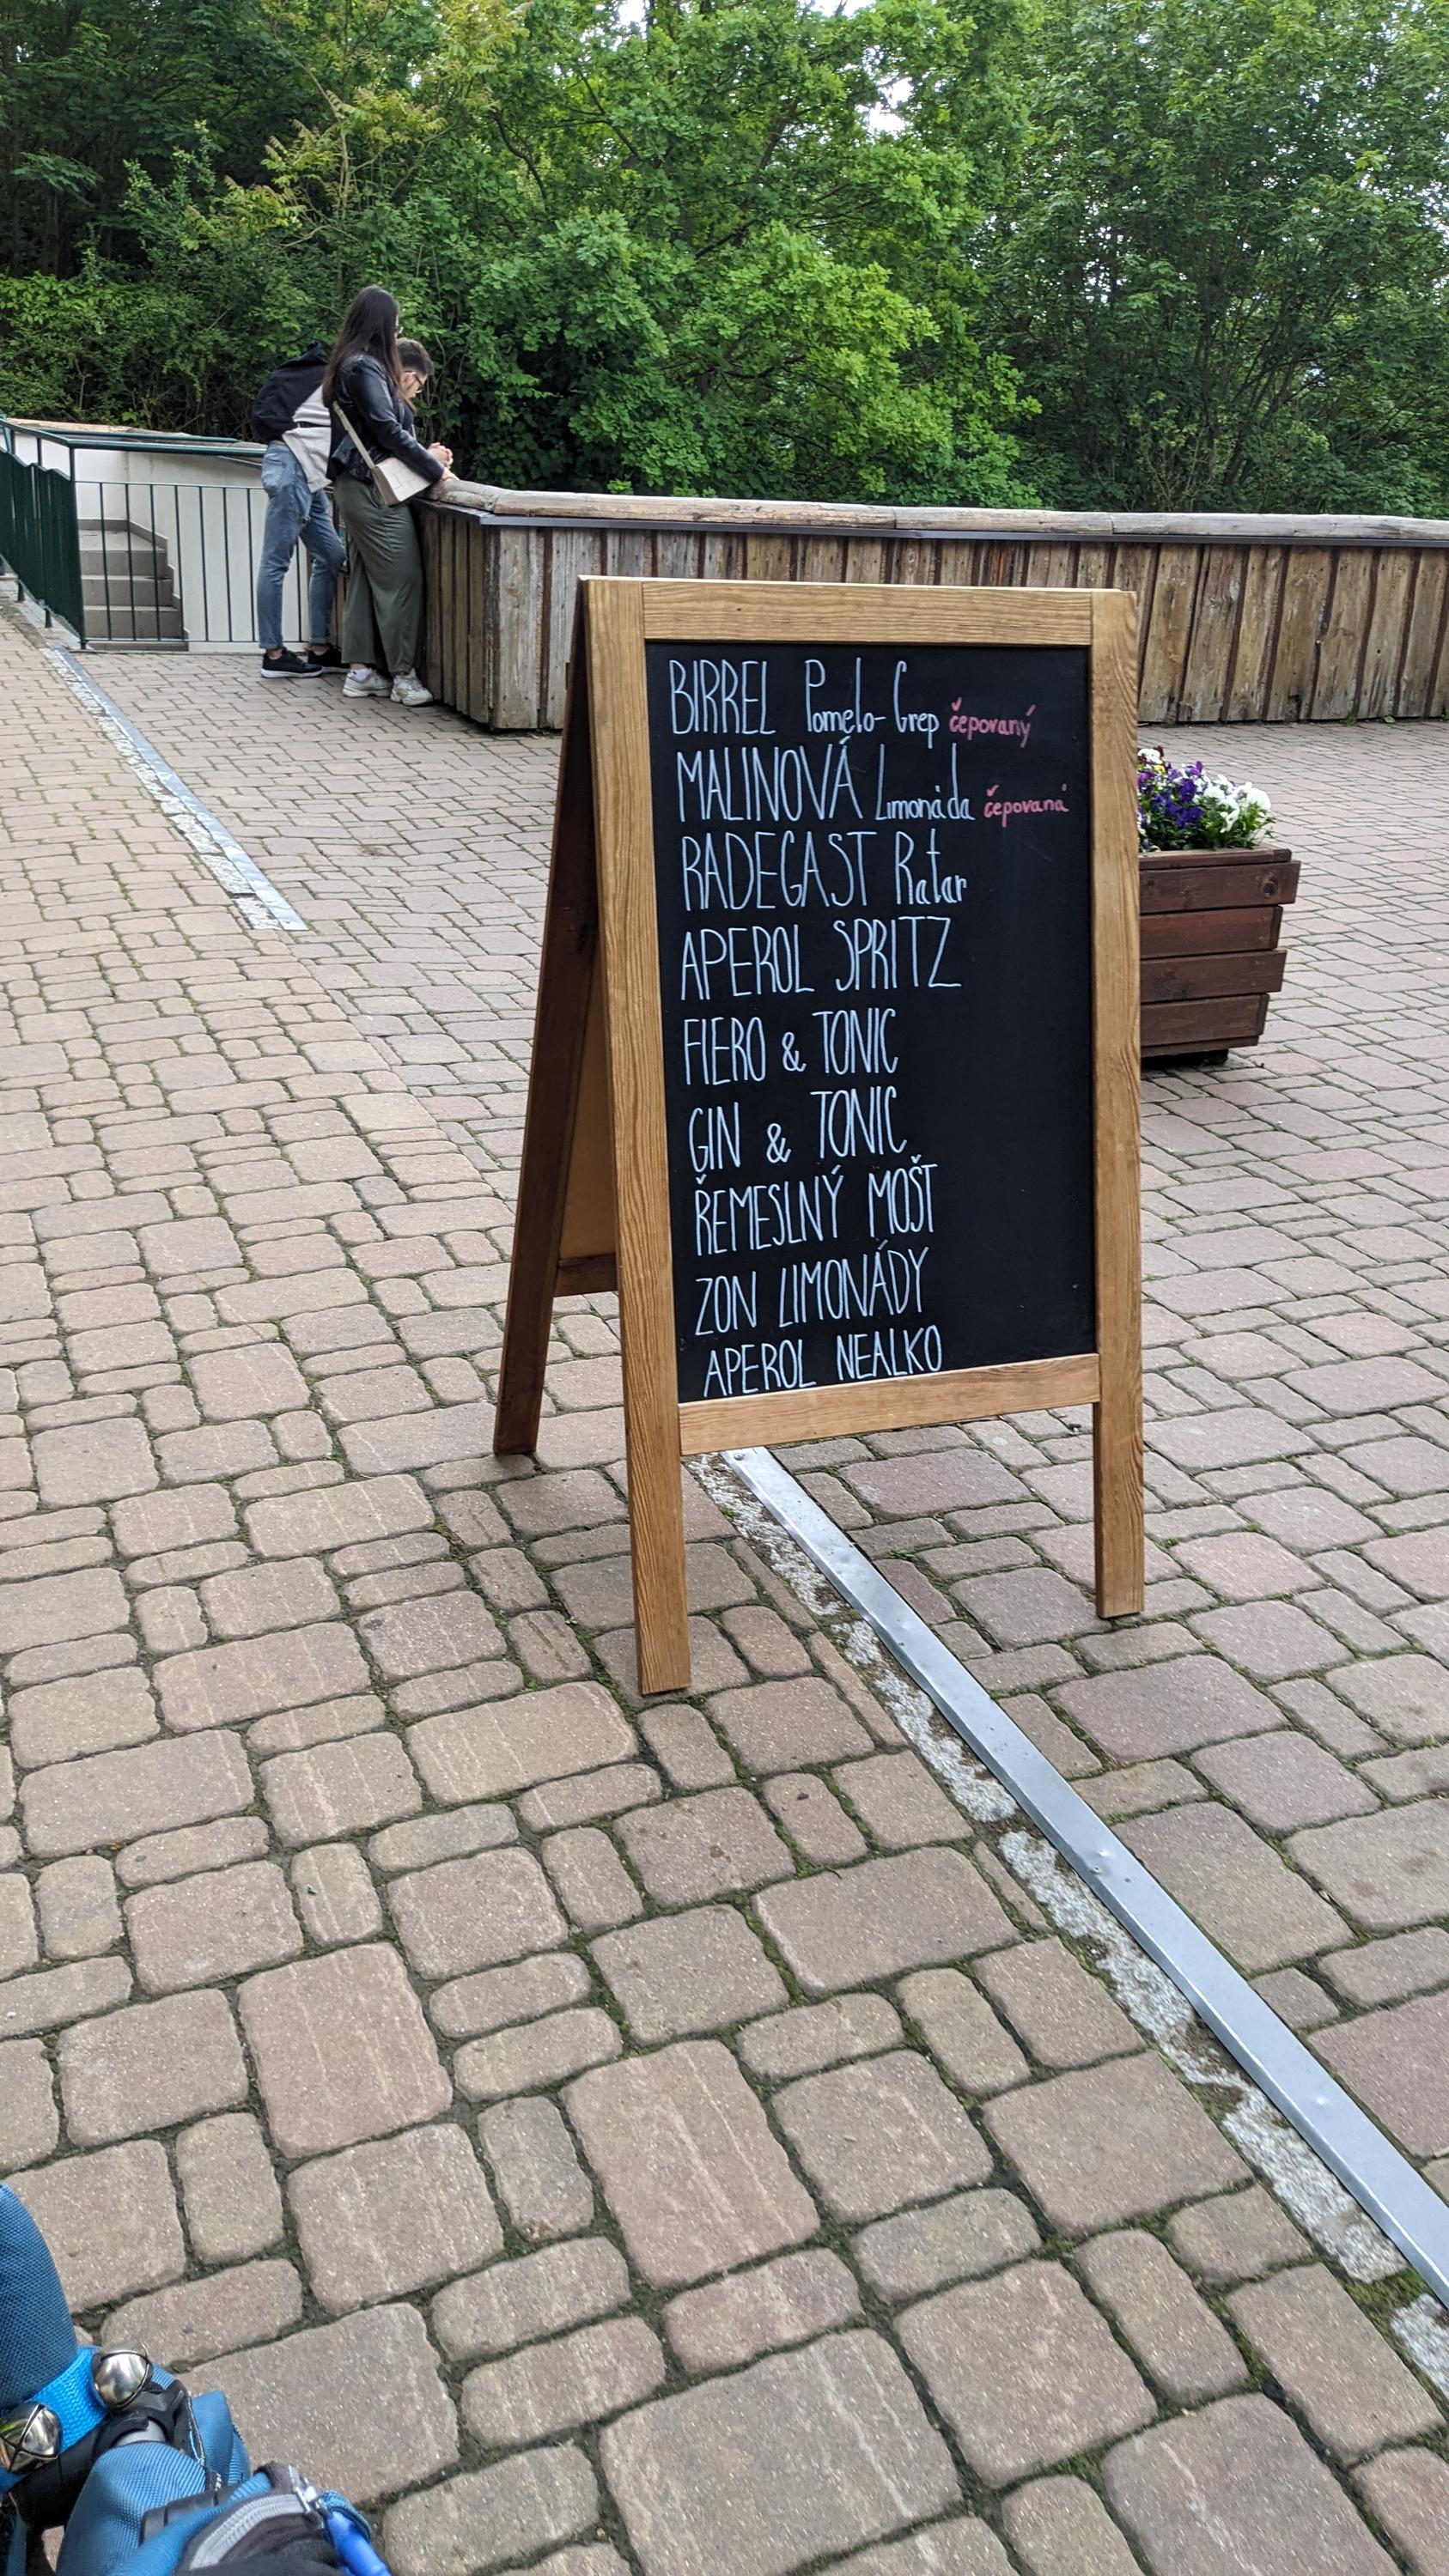 BIRREL Pomelo-Grep čepovaný
MALINOVÁ Limonáda čepovaná
RADEGAST Ratar
APEROL SPRITZ
FIERO & TONIC
GIN & TONIC
ŘEMESLNÝ MOŠT
ZON LIMONÁDY
APEROL NEALKO